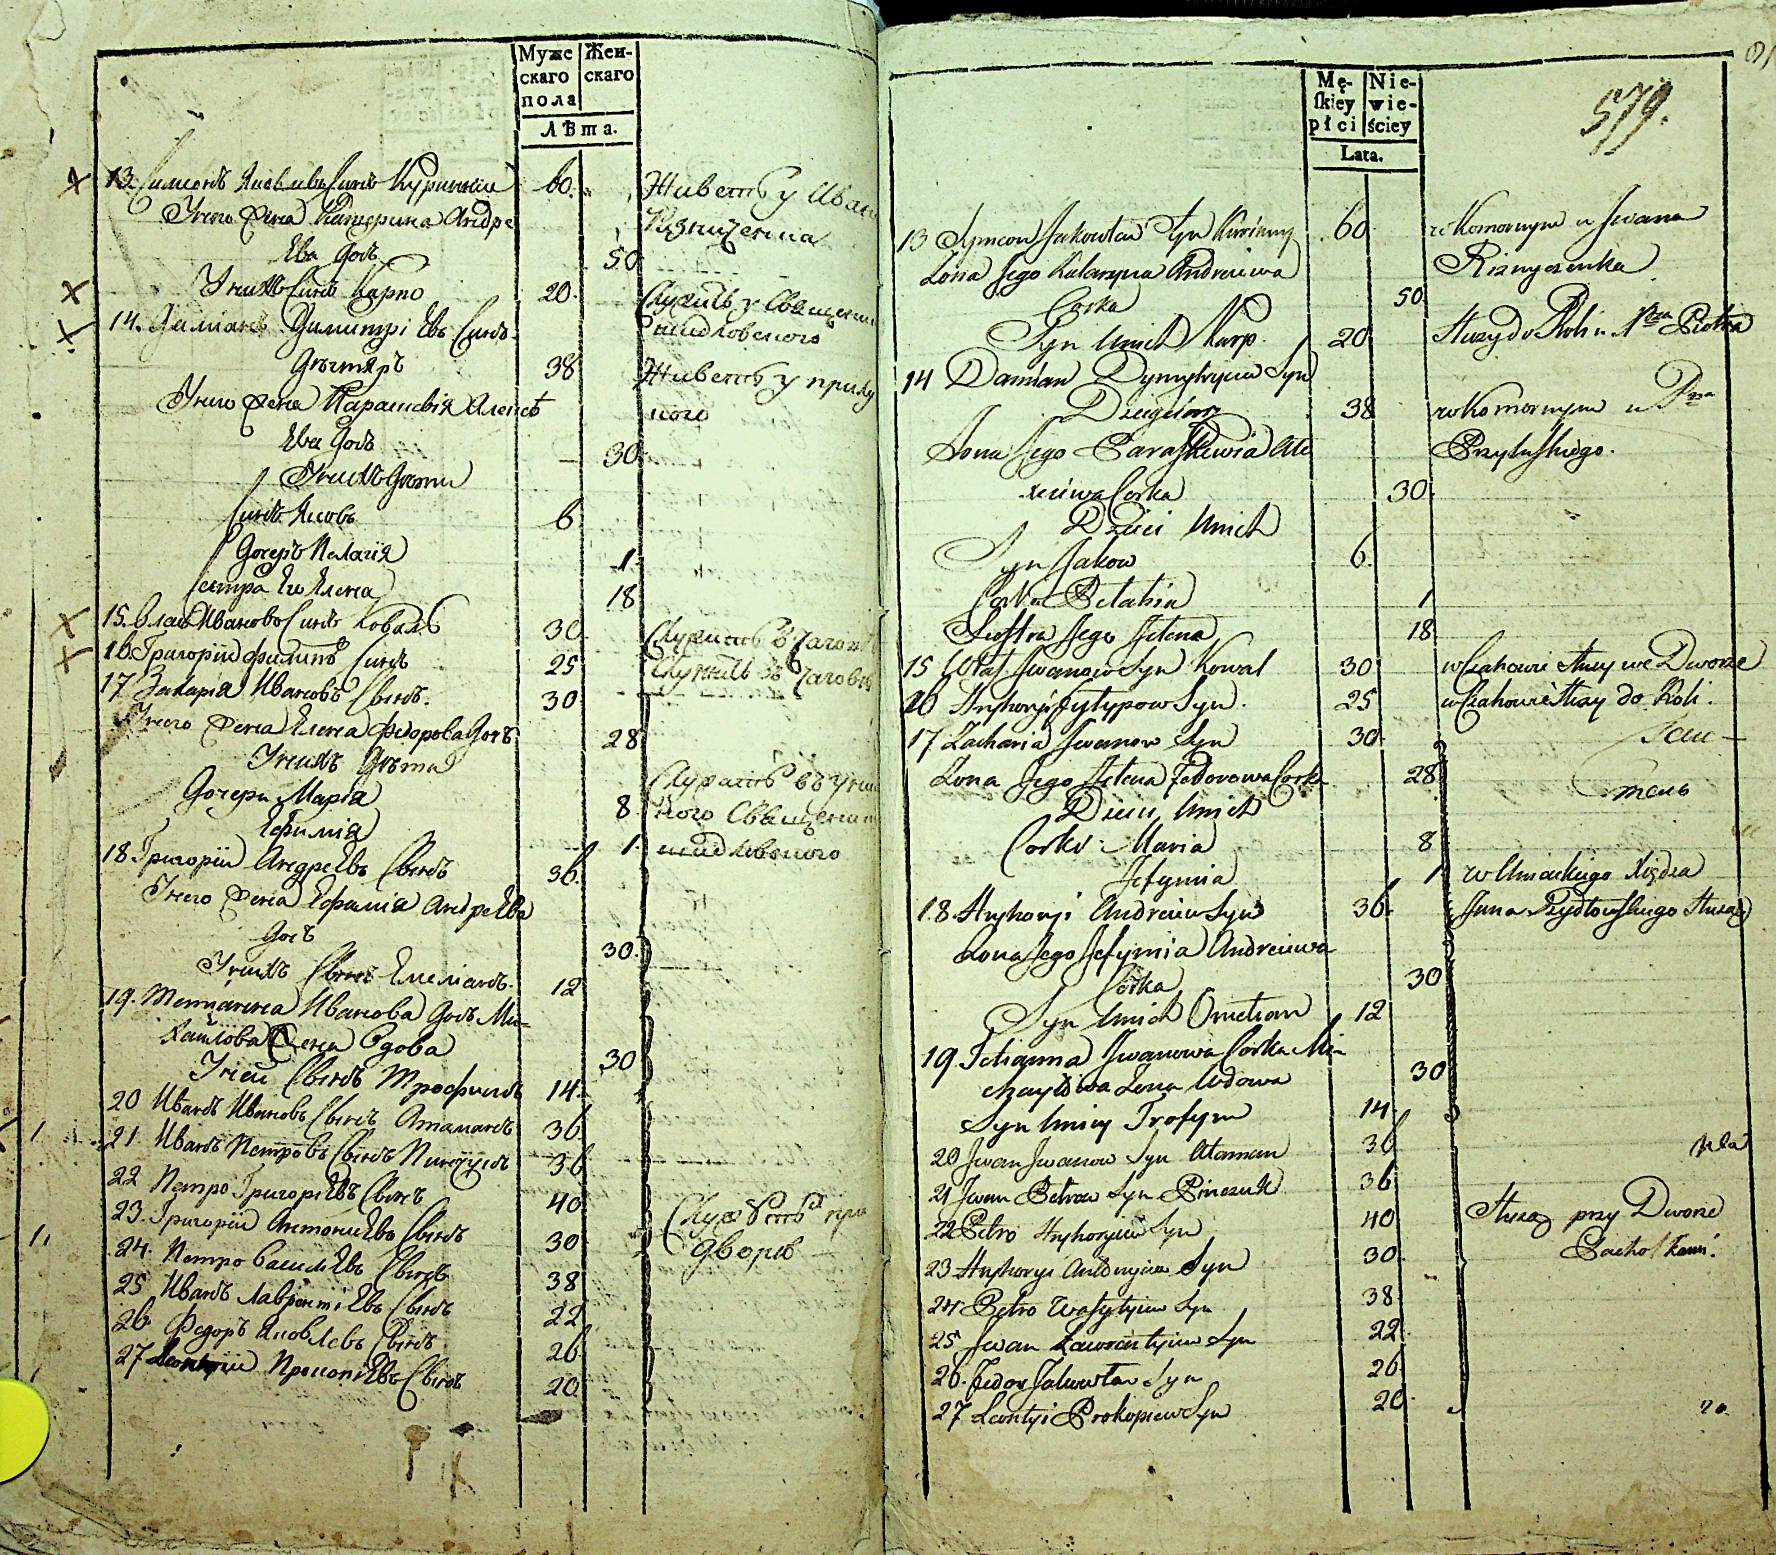 Муже
скаго
пола
Жен-
скаго
Лѣта.
13. Симонъ Яковлевъ Сынъ Куринный 60
Живетъ у Иван
Ризниченка
Уного Жена Катерина Андре
Ева Дочь 50
Унихъ Сынъ Карпо 20
Служитъ у Священни
14. Даміанъ Димитріевъ Сынъ
Дегтяръ 38
Живетъ у прилу
Уного Жена Параскевія Алексѣ
Ева Дочь 30
Унихъ Дѣти
Сынъ Яковъ 6
Дочерь Пелагія 1
Сестра Его Елена 18
15. Власъ Ивановъ Сынъ Коваль 30
16. Григорій Филипъ Сынъ 25
17 Захарія Ивановъ Сынъ 30
Уного Жена Елена Федорова Дочь 28
Унихъ Дѣти
Дочери Марія 8
Ефимія 1
Служитъ въ Униат
ского Священни
18. Григорій Андреевъ Сынъ 36
Уного Жена Ефимія Андреева
Дочь 30
Унихъ Сынъ Емеліанъ 12
19. Тетіанна Иванова Дочь Ми-
хайлова Жена Вдова 30
Уней Сынъ Трофимъ 14
20 Иванъ Ивановъ Сынъ Атаманъ 36
21 Иванъ Петровъ Сынъ Пинчукъ 36
22 Петро Григоріевъ Сынъ 40
23. Григорій Антоніевъ Сынъ 30
Служатъ при
Дворѣ
24. Петро Василіевъ Сынъ 38
25 Иванъ Лаврентіевъ Сынъ 22
26. Федоръ Яковлевъ Сынъ 26
27 Леонтій Прокопіевъ Сынъ 20
Mę-
skiey
płci
Nie-
wie-
ściey
Lata.
579.
13 Symeon Jakowlew Syn Kurinny 60
w Komornym u Iwana
Riznyczenka
Zona Jego Kataryna Andreiewa
Corka 50
Syn Unich Karp. 20
14 Damian Dymytryiew Syn
Dziegciarz 38
w Komornym u Pna
Przyłuskiego.
Zona Jego Paraskiewia Ale
xeiewa Corka 30
Dzieci Unich
Syn Jakow 6
Corka Pelahia 1
Siostra Jego Jelena 18
15 Własy Iwanow Syn Kowal 30
w Czahowie służy we Dworze
16 Hryhoryi Fylypow Syn 25
w Czahowie służy do Roli.
17 Zacharia Iwanow Syn 30
Zona Jego Jelena Fedorowa Corka 28
Dzieci Unich
Corki Maria 8
Jefymia 1
w Uniackiego Xiędza
18 Hryhoryi Andreiew Syn 36
Zona Jego Jefymia Andreiewa
Córka 30
Syn Unich Omelian 12
19 Tetianna Iwanowa Córka Mi-
chayłowa Zona Wdowa 30
Syn Uniey Trofym 14
20 Iwan Iwanow Syn Ataman 36
21 Iwan Petrow Syn Pinczuk 36
22 Petro Hryhoryiew Syn 40
Służą przy Dworze
Pachołkami.
23 Hryhoryi Antonyiew Syn 30
24 Petro Wasylyiew Syn 38
25 Iwan Lawrentyiew Syn 22
26. Fedor Jakowlew Syn 26
27 Leontyi Prokopiew Syn 20